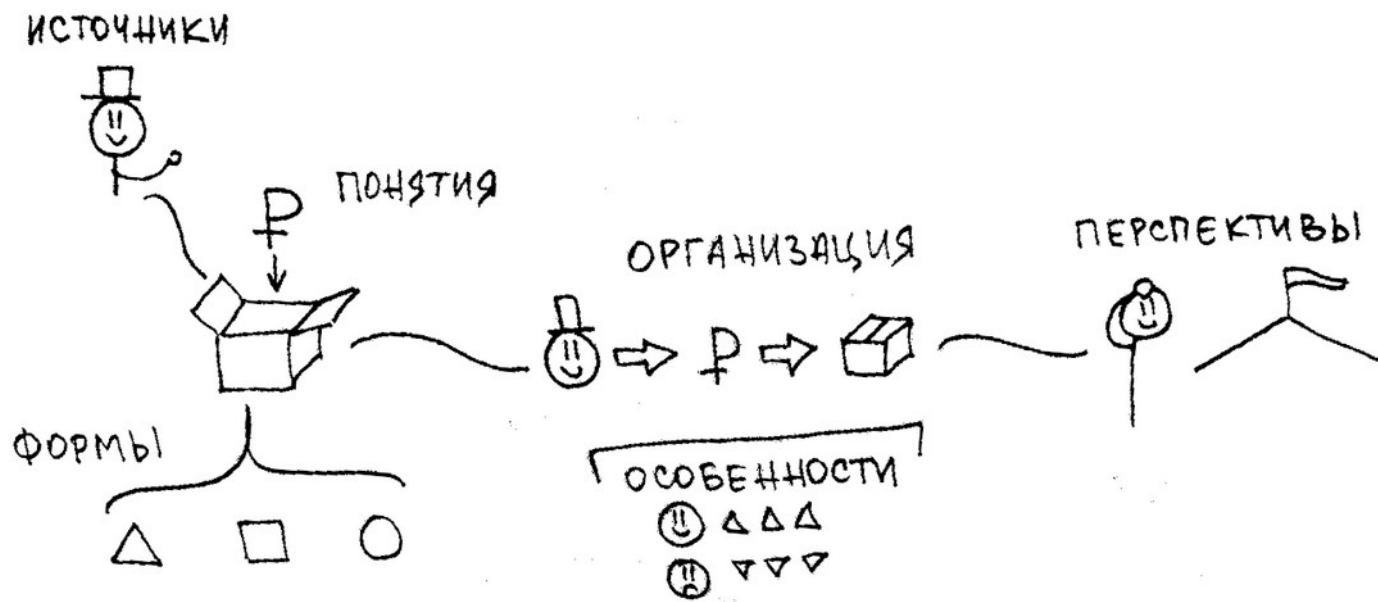 ИСТОЧНИКИ
₽ ПОНЯТИЯ
ОРГАНИЗАЦИЯ
ПЕРСПЕКТИВЫ
₽
ФОРМЫ
ОСОБЕННОСТИ